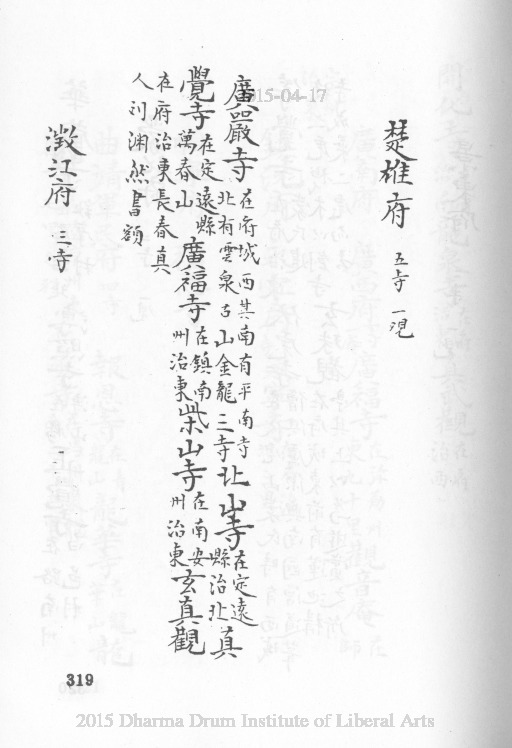 2015-04-17
楚雄府 五寺一覌
廣嚴寺 在府城西其南有平南寺北有雲泉古山金龍三寺 北山寺 在定遠縣治北 真
覺寺 在定遠縣萬春山 廣福寺 在鎮南州治東 柴山寺 在南安州治東 玄真觀
在府治東長春真
人刘渊然書額
澂江府 三寺
319
2015 Dharma Drum Institute of Liberal Arts